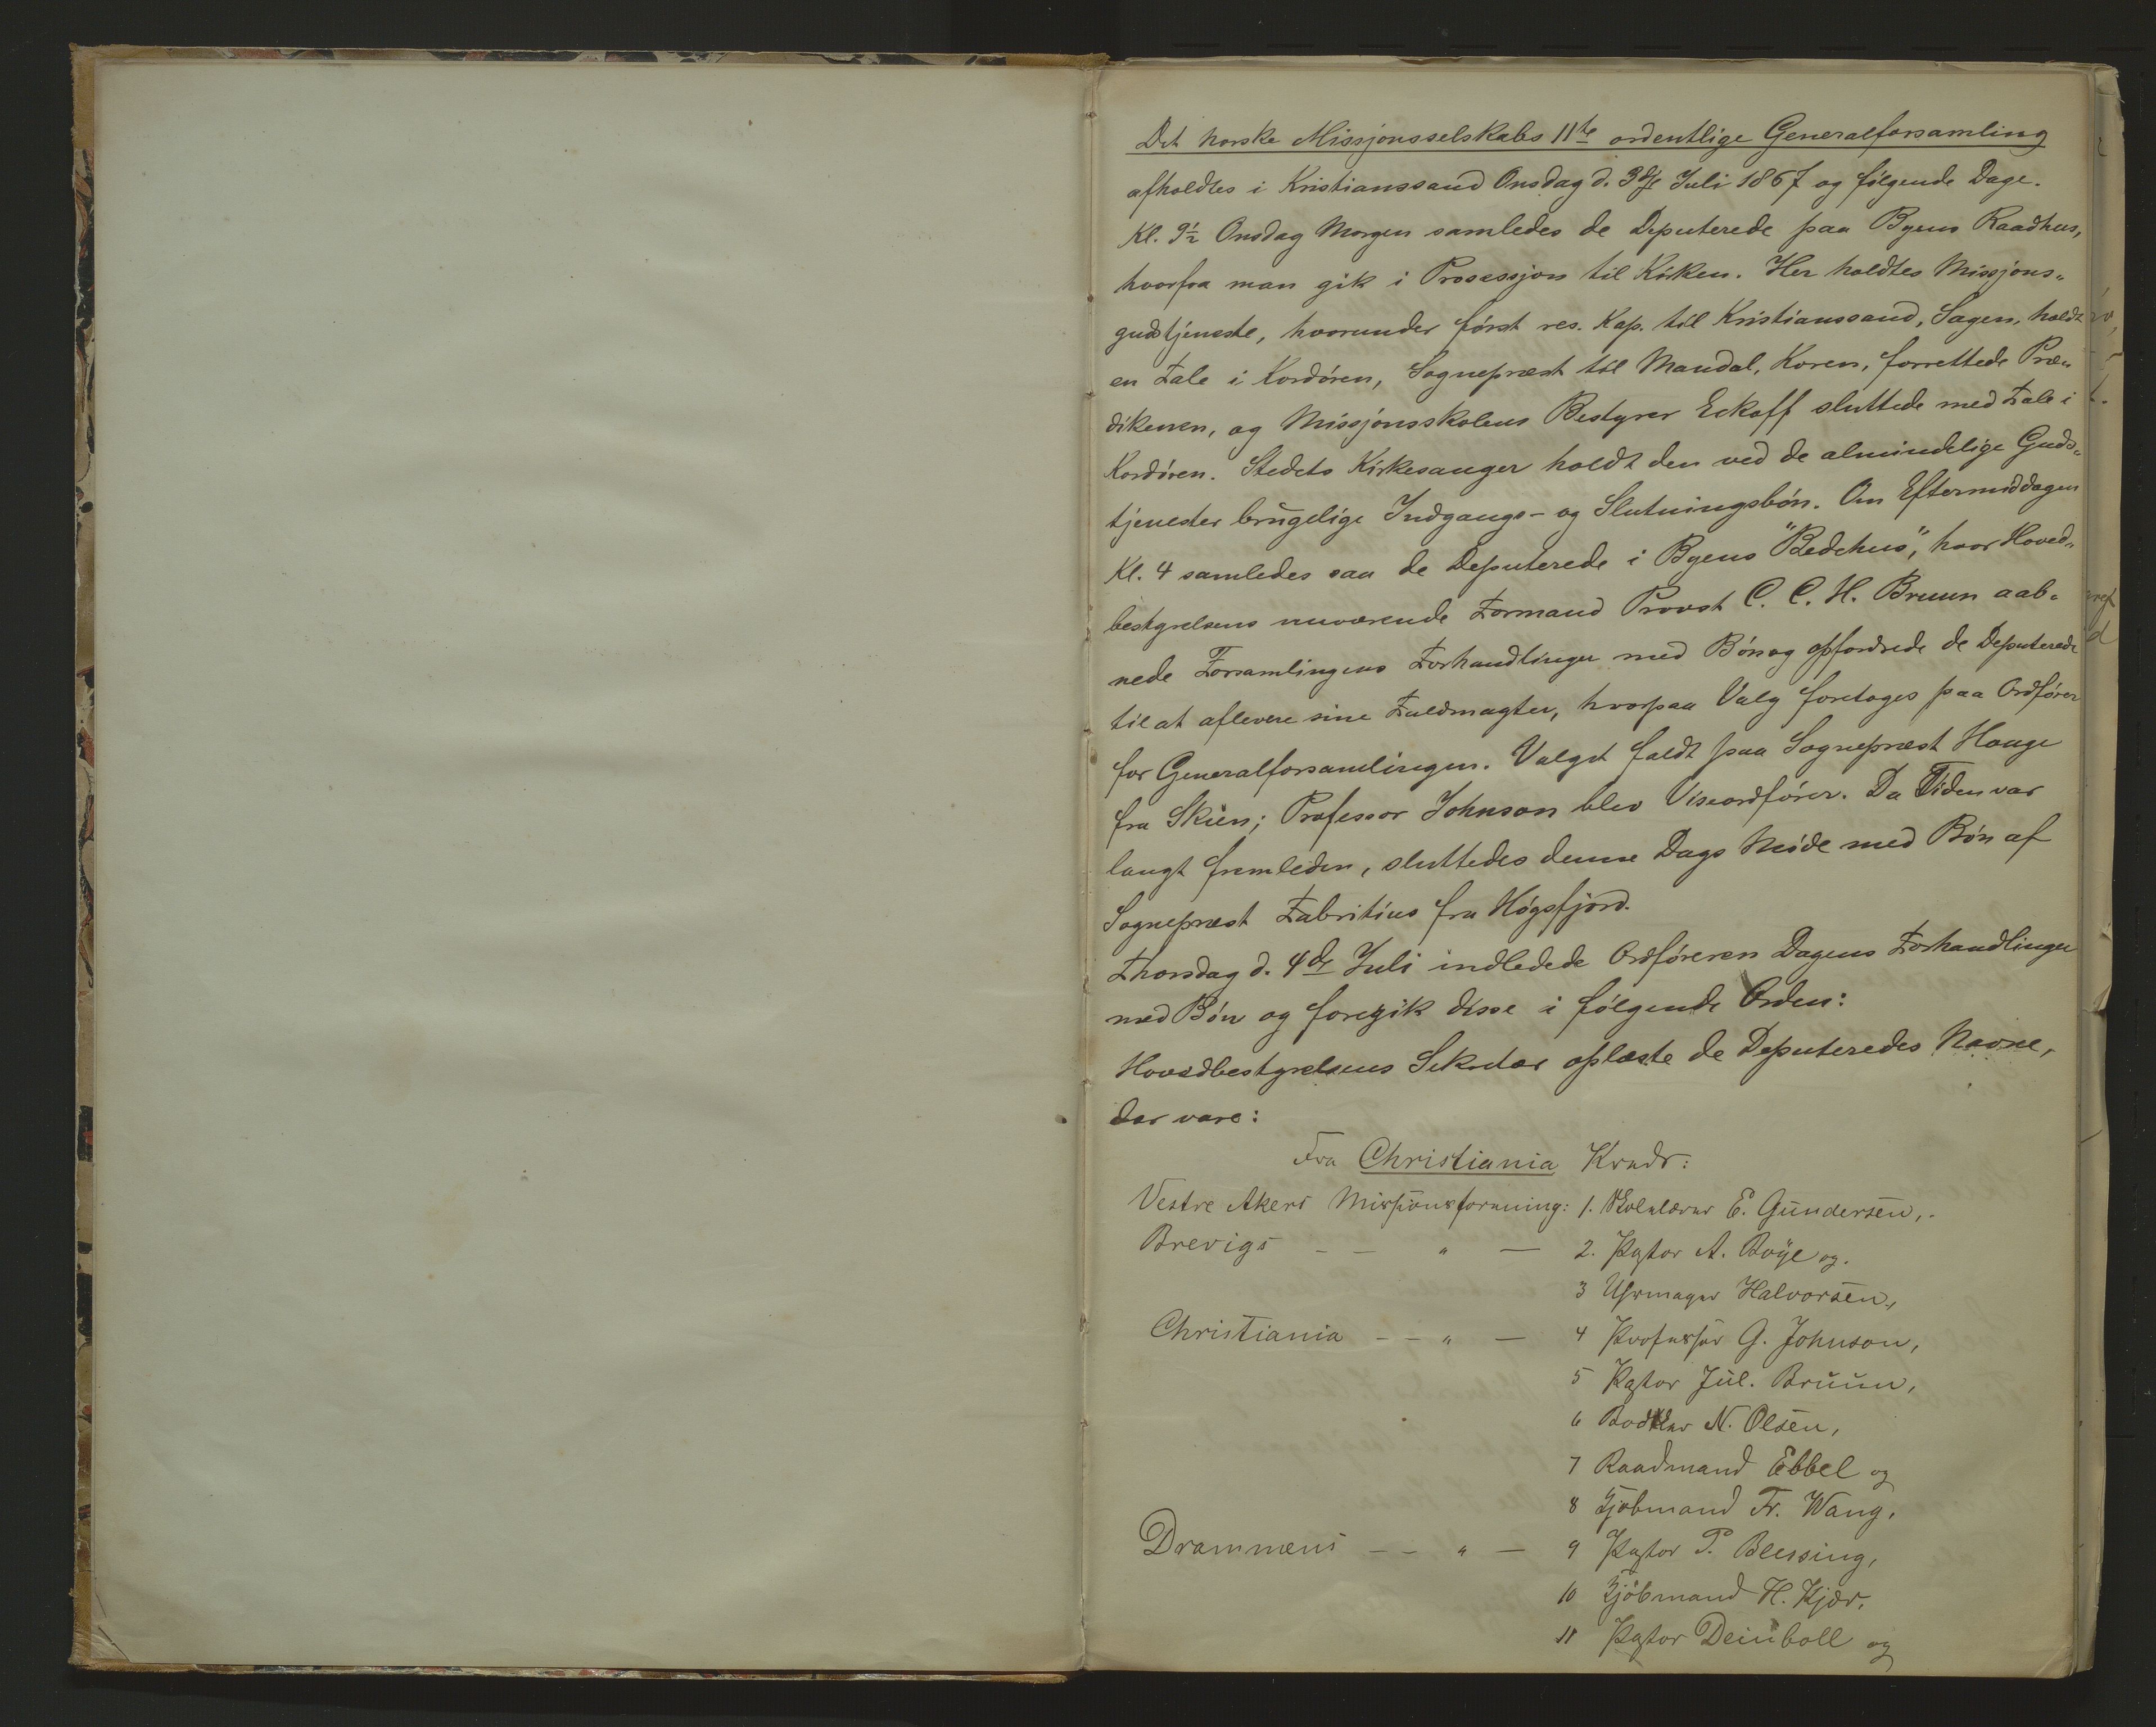 Det norske Missjonsselskabs 11te ordentlige Generalforsamling
afholdtes i Kristianssand Onsdag d. 3dje Juli 1867 og følgende Dage.
Kl. 9½ Onsdag Morgen samledes de Deputerede paa Byens Raadhus,
hvorfra man gik i Prosessjon til Kirken. Her holdtes Missjons„
gudstjeneste, hvorunder først res. Kap. til Kristianssand, Sagen, holdt
en Tale i Kordøren, Sognepræst til Mandal, Koren, forrettede Præ„
dikenen, og Missjonsskolens Bestyrer Eckoff sluttede med Tale i
Kordøren. Stedets Kirkesanger holdt den ved de almindelige Guds„
tjenester brugelige Indgangs- og Slutningsbøn. Om Eftermiddagen
Kl. 4 samledes saa de Deputerede i Byens "Bedehus", hvor Hoved„
bestyrelsens nuværende Formand Provst C. C. H. Bruun aab„
nede Forsamlingens Forhandlinger med Bøn og opfordrede de Deputerede
til at aflevere sine Fuldmagter, hvorpaa Valg foretoges paa Ordfører
for Generalforsamlingen. Valget faldt paa Sognepræst Hauge
fra Skien; Professor Johnson blev Viseordfører. Da Tiden var
langt fremleden, sluttedes denne Dags Møde med Bøn af
Sognepræst Fabritius fra Høgsfjord.
Thorsdag d. 4de Juli indledede Ordføreren Dagens Forhandlinger
med Bøn og foregik disse i følgende Orden:
Hovedbestyrelsens Sekretær oplæste de Deputeredes Navne,
der vare:
Fra Christiania Kreds:
Vestre Akers Missionsforening: 1. Skolelærer E. Gundersen,
Brevigs — — „ — 2. Pastor A. Boÿe og
3 Uhrmager Halvorsen,
Christiania — — „ — 4 Professor G. Johnson,
5 Pastor Jul. Bruun,
6 Bødker N. Olsen,
7 Raadmand Ebbel og
8 Kjøbmand Fr. Wang,
Drammens — — „ — 9 Pastor P. Blessing,
10 Kjøbmand H. Kjær,
11 Pastor Deinboll og